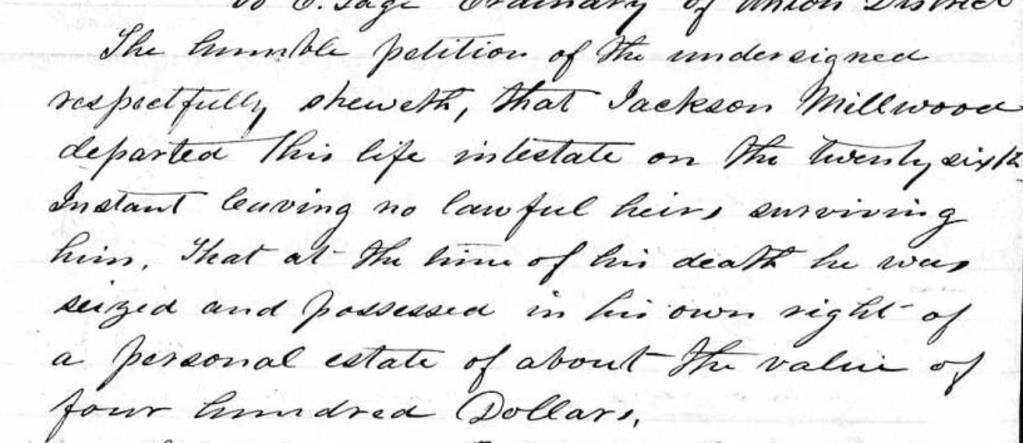 Ordinary of Union District
The humble petition of the undersigned
respectfully sheweth, that Jackson Millwood
departed this life intestate on the twenty sixth
Instant leaving no lawful heirs surviving
him. That at the time of his death he was
seized and possessed in his own right of
a personal estate of about the value of
four hundred Dollars.